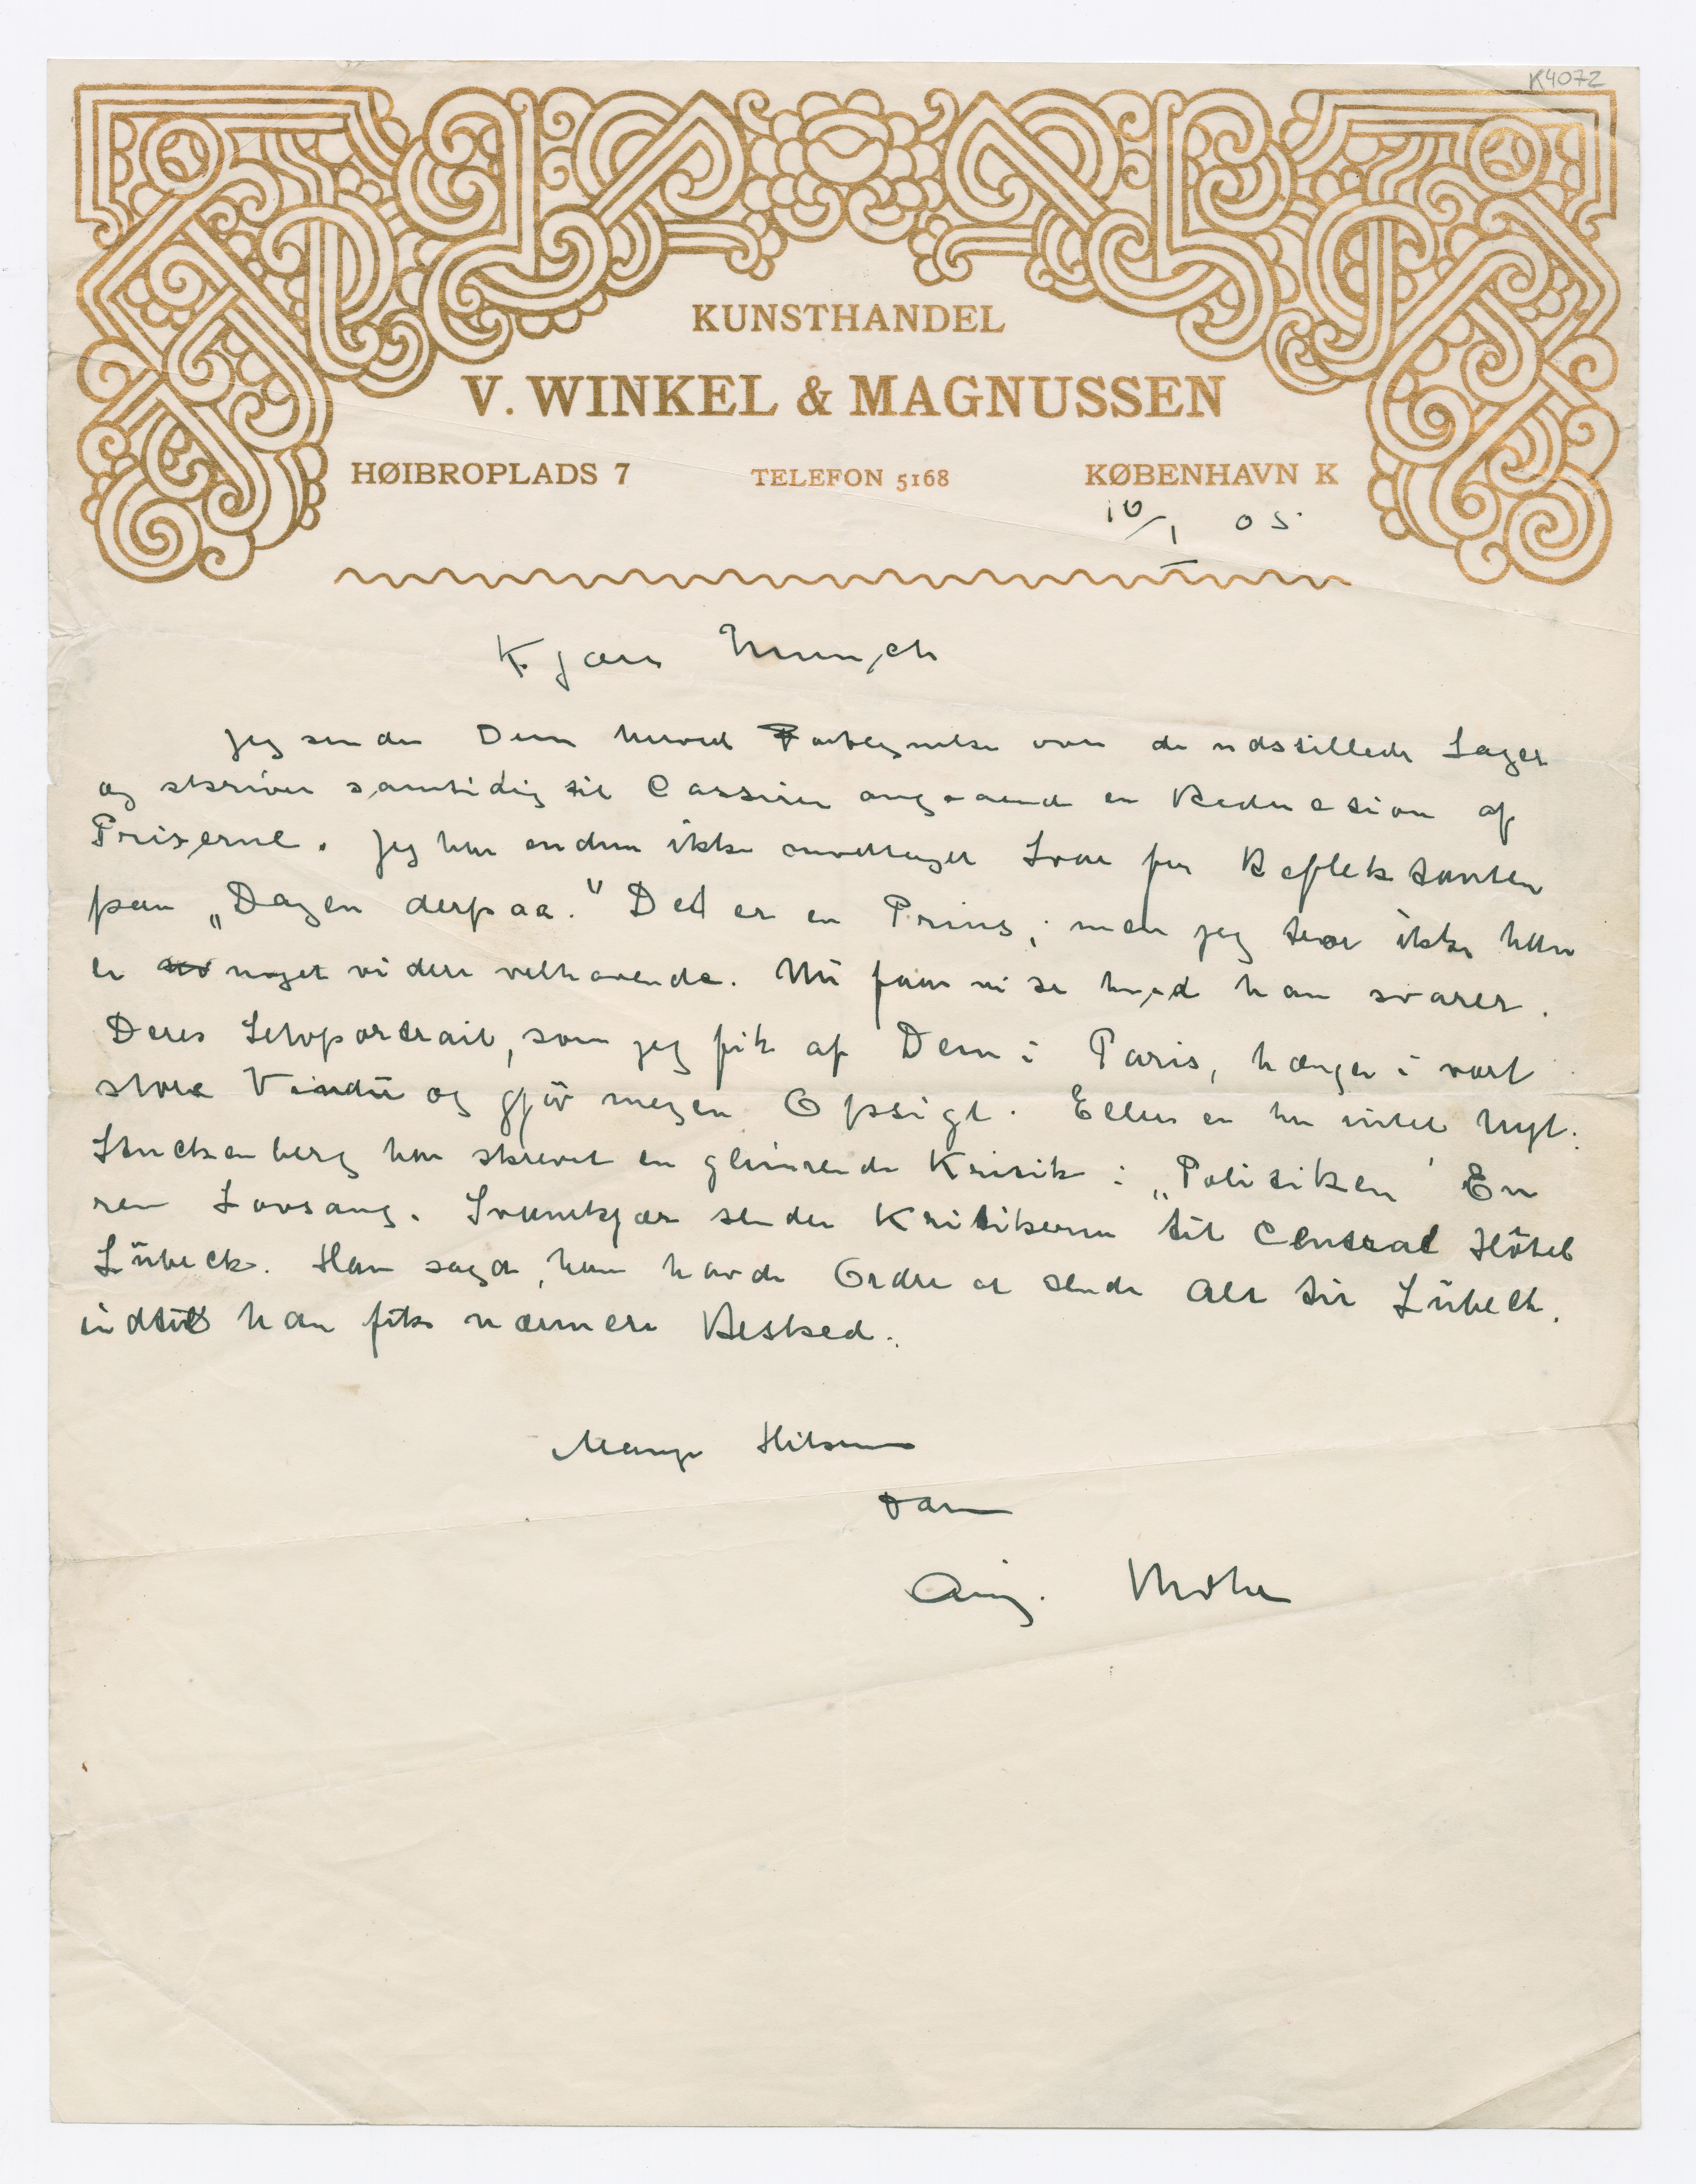 K4072
KUNSTHANDEL
V. WINKEL & MAGNUSSEN
HØIBROPLADS 7 TELEFON 5168 KØBENHAVN K
10/1 05
Kjære Munch
Jeg sender Dem herved Fortegnelse over de udstillede Sager
og skriver samtidig til Cassirer angaaende en Reduction af
Priserne. Jeg har endnu ikke modtaget Svar fra Reflektanten
paa „Dagen derpaa." Det er en Prins; men jeg tror ikke han
er noget videre velhavende. Nu faar vi se hvad han svarer.
Deres Selvportrait, som jeg fik af Dem i Paris, hænger i vort
store Vindu og gjør megen Opsigt. Ellers er her intet Nyt.
Stuckenberg har skrevet en glimrende Kritik i „Politiken" En
ren Lovsang. Svenekjær sender Kritikerne til Central Hôtel
Lübeck. Han sagde, han havde Ordre at sende Alt til Lübeck,
indtil han fik nærmere Besked.
Mange Hilsener
Aug.